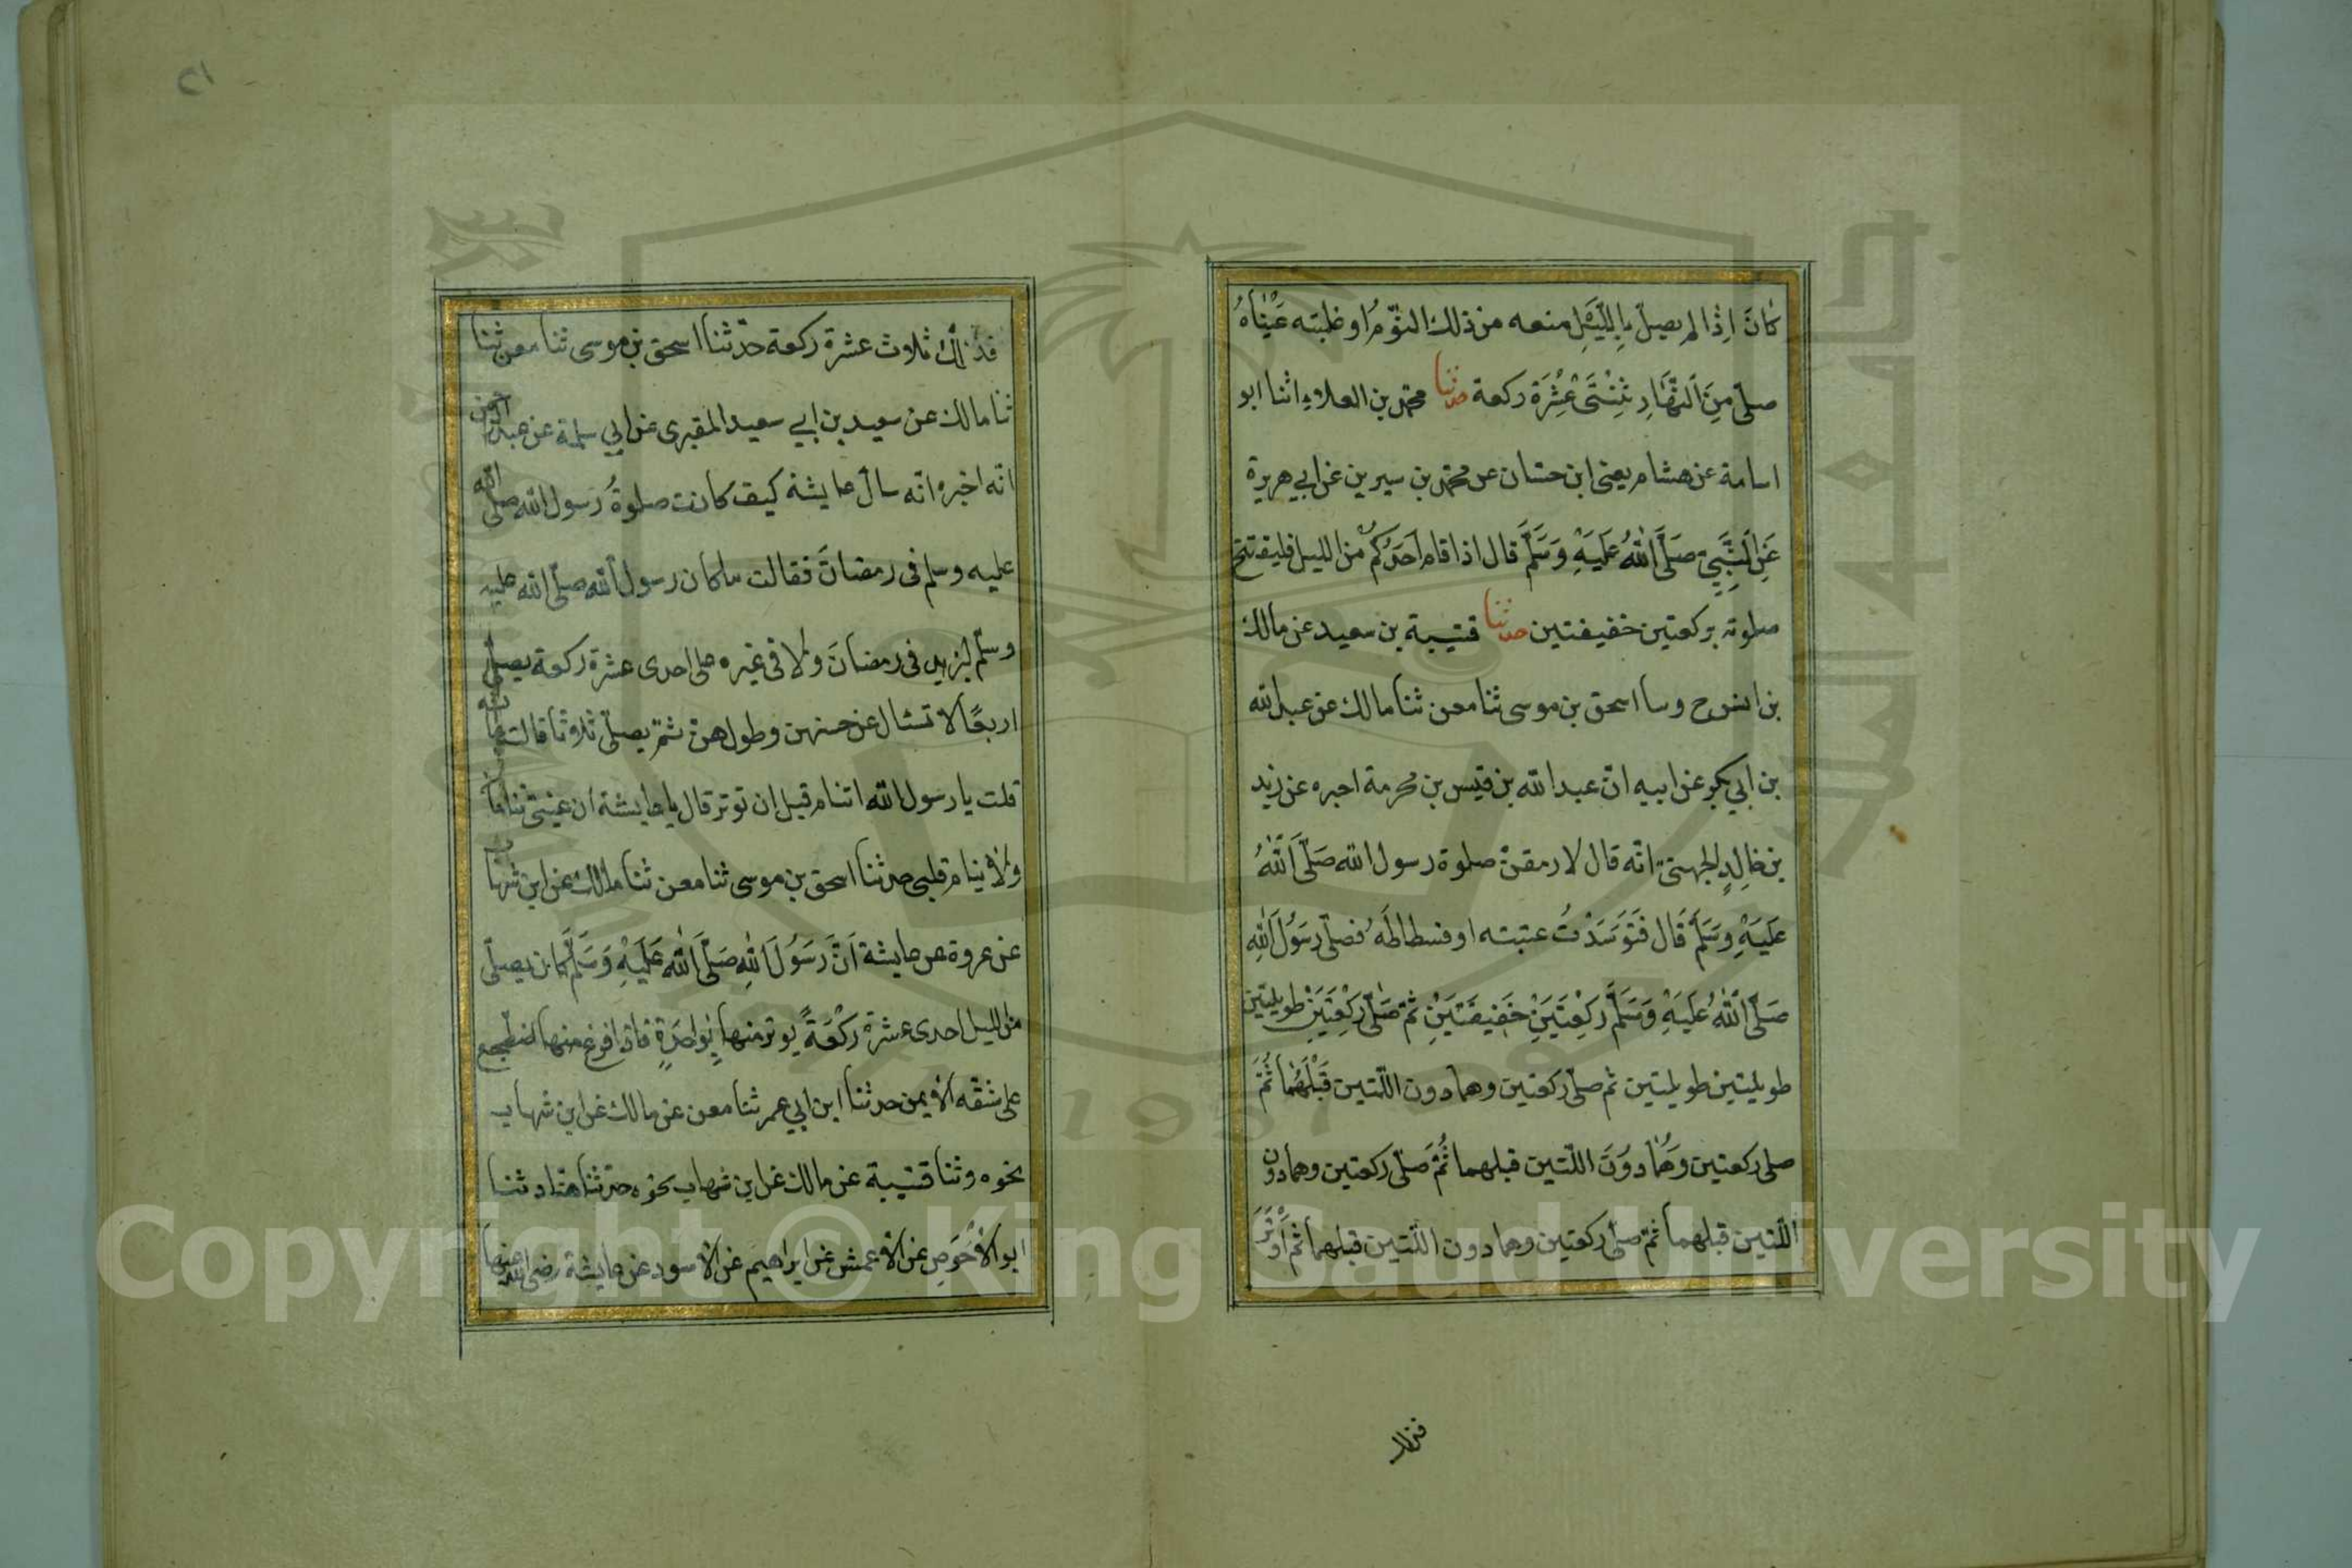 كَانَ اِذا لم يصلّ بِاللّيْلِ منعه من ذلك النّوْمُ او غلبته عَيْنَاهُ
صلّى مِنَ النّهَارِ ثِنْتَىْ عَشْرَةَ ركعة حدثنا محمّد بن العلاء اثنا ابو
اسامة عن هشام يعنى ابن حسّان عن محمّد بن سيرين عن ابي هريرة
عَنِ النَّبِيّ صَلَّى اللهُ عَلَيْهِ وَسَلَّمَ قال اذا قام اَحَدُكُمْ من الليل فليفتتح
صلوته بركعتين خفيفتين حدثنا قتيبة بن سعيد عن مالك
بن انس ح وسا اسحق بن موسى ثنا معن ثنا مالك عن عبد الله
بن ابي بكر عن ابيه انّ عبد الله بن قيس بن مخرمة اخبره عن زيد
بن خالِدٍ الجهنىّ انّه قال لارمقنّ صلوة رسول الله صَلّى اللهُ
عَلَيْهِ وَسَلّمَ قَال فَتَوَسَدْتُ عتبته او فسطاطَهُ فصلّى رَسُوُلَ اللهِ
صَلّى اللهُ عَلَيْهِ وَسَلَّمَ رَكِعْتَيَنْ خَفِيفَتَيْنِ ثمّ صَلّى رَكِعْتَيَنْ طويلتين
طويلتين طويلتين ثم صلّى ركعتين وهما دون اللّتين قَبْلَهُمَا ثُمَّ
صلى ركعتين وَهُمَا دوُنَ اللّتين قبلهما ثُمَّ صَلّى ركعتين وهما دون
اللّتين قبلهما ثمّ صلّى ركعتين وهما دون اللّتين قبلهما ثُمَّ اَوْتَرَ
فذلك
٢١
فذلك ثلاث عشرة ركعة حدّثنا اسحق بن موسى ثنا معن ثنا
ثنا مالك عن سعيد بن ابي سعيد المقبرى عن ابي سلمة عن عبد الرحمن
انّه اخبره انّه سال عايشة كيف كانت صلوةُ رسول الله صلّى الله
عليه وسلم فى رمضانَ فقالت ما كان رسول الله صلّى الله عليه
وسلّم ليزيد فى رمضانَ ولا فى غيره على احدى عشرة ركعة يصلّى
اربعًا لا تسئال عن حسنهن وطولهنّ ثمّ يصلّى ثلاثا قالت عايشه
قلت يا رسول الله اتنام قبل ان توتر قال يا عايشة ان عينىّ تناما
ولا ينام قلبى حدثنا اسحق بن موسى ثنا معن ثنا مالك عن ابن شهاب
عن عروة عن عايشة اَنَّ رَسَوُلَ اللهِ صَلَّى الله عَلَيْهِ وَسَلَّمَ كان يصلّى
من الليل احدى عشرة رَكْعَةً يوتر منها بِوَاحِدَةٍ فاذا فرغ منها اضطجع
على شقّه الايمن حدثنا ابن ابي عمر ثنا معن عن مالك عن ابن شهاب
نحوه وثنا قتيبة عن مالك عن ابن شهاب نحوه حدّثنا هنّاد ثنا
ابو الاَحْوَصِ عن الاعمش عن ابراهيم عن الاسود عن عايشة رضى الله عنها
Copyright © King Saud University
1957